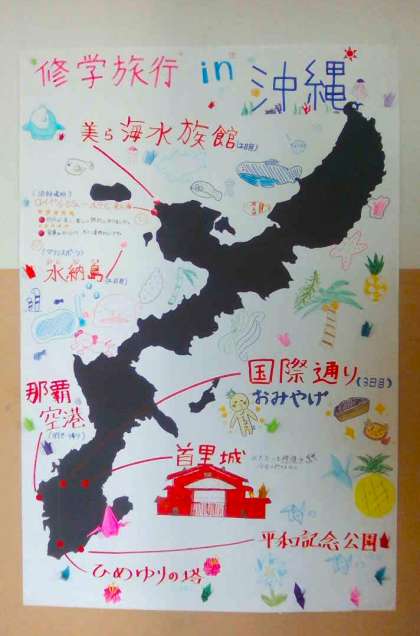 修学旅行 in 沖縄
美ら海水族館(2日目)
水納島(2日目)
那覇
空港
国際通り(3日目)
おみやげ
首里城
平和記念公園
ひめゆりの塔